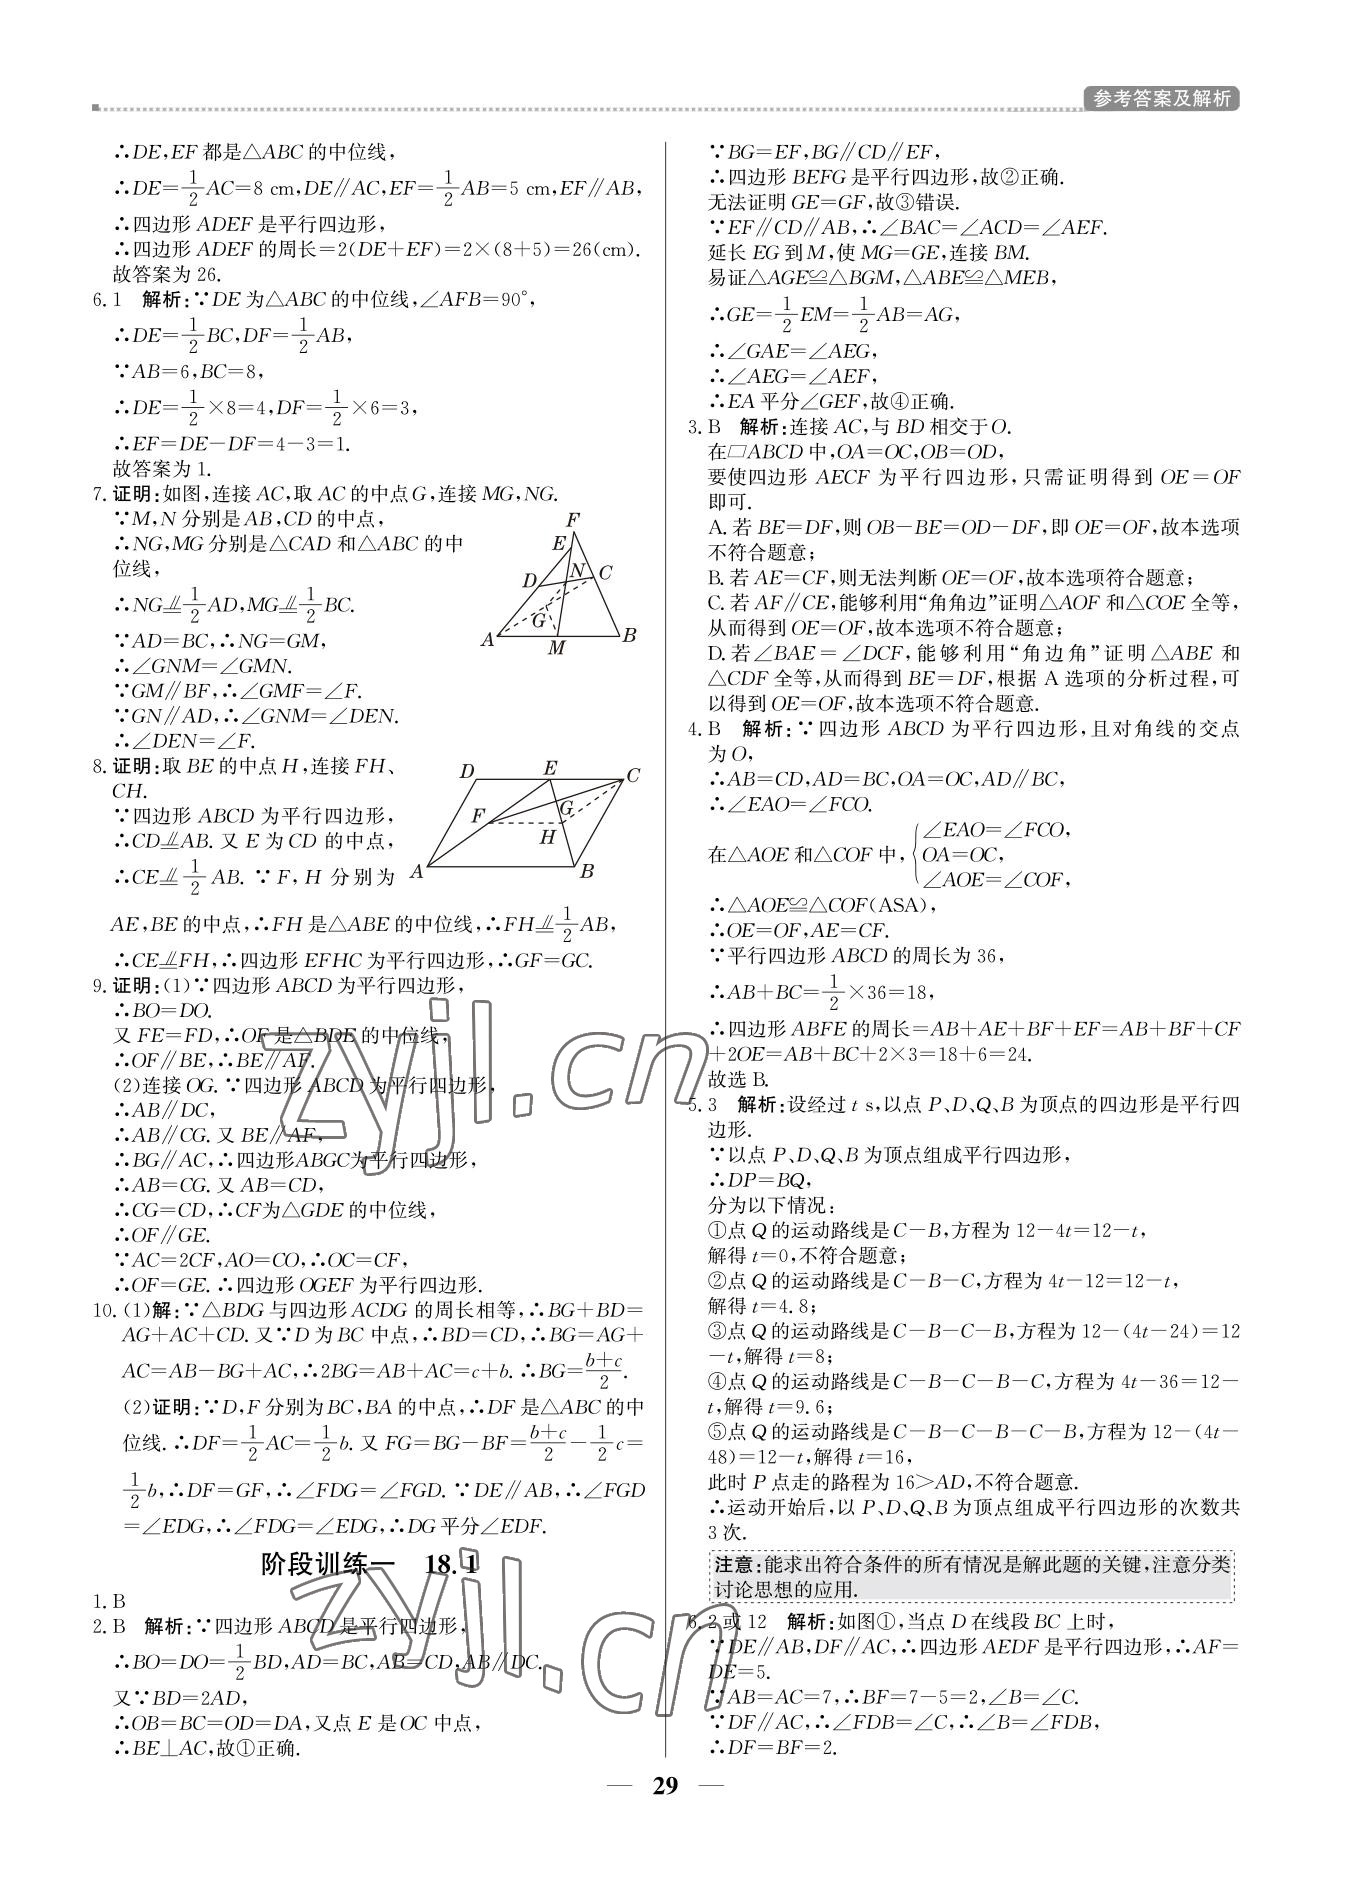 参考答案及解析
∴DE,EF 都是△ABC 的中位线,
∴DE=1/2AC=8 cm,DE∥AC,EF=1/2AB=5 cm,EF∥AB,
∴四边形 ADEF 是平行四边形,
∴四边形 ADEF 的周长=2(DE+EF)=2×(8+5)=26(cm).
故答案为 26.
6. 1 解析:∵DE 为△ABC 的中位线,∠AFB=90°,
∴DE=1/2BC,DF=1/2AB,
∵AB=6,BC=8,
∴DE=1/2×8=4,DF=1/2×6=3,
∴EF=DE-DF=4-3=1.
故答案为 1.
7. 证明:如图,连接 AC,取 AC 的中点 G,连接 MG,NG.
∵M,N 分别是 AB,CD 的中点,
∴NG,MG 分别是△CAD 和△ABC 的中
位线,
∴NG⫽1/2AD,MG⫽1/2BC.
∵AD=BC,∴NG=GM,
∴∠GNM=∠GMN.
∵GM∥BF,∴∠GMF=∠F.
∵GN∥AD,∴∠GNM=∠DEN.
∴∠DEN=∠F.
F
E
D
N
C
G
A
M
B
8. 证明:取 BE 的中点 H,连接 FH、
CH.
∵四边形 ABCD 为平行四边形,
∴CD⫽AB. 又 E 为 CD 的中点,
∴CE⫽1/2AB. ∵F, H 分别为
D
E
C
F
G
H
A
B
AE,BE 的中点,∴FH 是△ABE 的中位线,∴FH⫽1/2AB,
∴CE⫽FH,∴四边形 EFHC 为平行四边形,∴GF=GC.
9. 证明:(1)∵四边形 ABCD 为平行四边形,
∴BO=DO.
又 FE=FD,∴OF 是△BDE 的中位线,
∴OF∥BE,∴BE∥AF.
(2)连接 OG. ∵四边形 ABCD 为平行四边形,
∴AB∥DC,
∴AB∥CG. 又 BE∥AF,
∴BG∥AC,∴四边形ABGC为平行四边形,
∴AB=CG. 又 AB=CD,
∴CG=CD,∴CF为△GDE 的中位线,
∴OF∥GE.
∵AC=2CF,AO=CO,∴OC=CF,
∴OF=GE. ∴四边形 OGEF 为平行四边形.
10. (1)解:∵△BDG 与四边形 ACDG 的周长相等,∴BG+BD=
AG+AC+CD. 又∵D 为 BC 中点,∴BD=CD,∴BG=AG+
AC=AB-BG+AC,∴2BG=AB+AC=c+b. ∴BG=(b+c)/2.
(2)证明:∵D,F 分别为 BC,BA 的中点,∴DF 是△ABC 的中
位线. ∴DF=1/2AC=1/2b. 又 FG=BG-BF=(b+c)/2-1/2c=
1/2b,∴DF=GF,∴∠FDG=∠FGD. ∵DE∥AB,∴∠FGD
=∠EDG,∴∠FDG=∠EDG,∴DG 平分∠EDF.
阶段训练一 18.1
1. B
2. B 解析:∵四边形 ABCD 是平行四边形,
∴BO=DO=1/2BD,AD=BC,AB=CD,AB∥DC.
又∵BD=2AD,
∴OB=BC=OD=DA,又点 E 是 OC 中点,
∴BE⊥AC,故①正确.
∵BG=EF,BG∥CD∥EF,
∴四边形 BEFG 是平行四边形,故②正确.
无法证明 GE=GF,故③错误.
∵EF∥CD∥AB,∴∠BAC=∠ACD=∠AEF.
延长 EG 到 M,使 MG=GE,连接 BM.
易证△AGE≌△BGM,△ABE≌△MEB,
∴GE=1/2EM=1/2AB=AG,
∴∠GAE=∠AEG,
∴∠AEG=∠AEF,
∴EA 平分∠GEF,故④正确.
3. B 解析:连接 AC,与 BD 相交于 O.
在▱ABCD 中,OA=OC,OB=OD,
要使四边形 AECF 为平行四边形,只需证明得到 OE=OF
即可.
A. 若 BE=DF,则 OB-BE=OD-DF,即 OE=OF,故本选项
不符合题意;
B. 若 AE=CF,则无法判断 OE=OF,故本选项符合题意;
C. 若 AF∥CE,能够利用“角角边”证明△AOF 和△COE 全等,
从而得到 OE=OF,故本选项不符合题意;
D. 若∠BAE=∠DCF,能够利用“角边角”证明△ABE 和
△CDF 全等,从而得到 BE=DF,根据 A 选项的分析过程,可
以得到 OE=OF,故本选项不符合题意.
4. B 解析:∵四边形 ABCD 为平行四边形,且对角线的交点
为 O,
∴AB=CD,AD=BC,OA=OC,AD∥BC,
∴∠EAO=∠FCO.
∠EAO=∠FCO,
在△AOE 和△COF 中,{OA=OC,
∠AOE=∠COF,
∴△AOE≌△COF(ASA),
∴OE=OF,AE=CF.
∵平行四边形 ABCD 的周长为 36,
∴AB+BC=1/2×36=18,
∴四边形 ABFE 的周长=AB+AE+BF+EF=AB+BF+CF
+2OE=AB+BC+2×3=18+6=24.
故选 B.
5. 3 解析:设经过 t s,以点 P、D、Q、B 为顶点的四边形是平行四
边形.
∵以点 P、D、Q、B 为顶点组成平行四边形,
∴DP=BQ,
分为以下情况:
①点 Q 的运动路线是 C-B,方程为 12-4t=12-t,
解得 t=0,不符合题意;
②点 Q 的运动路线是 C-B-C,方程为 4t-12=12-t,
解得 t=4.8;
③点 Q 的运动路线是 C-B-C-B,方程为 12-(4t-24)=12
-t,解得 t=8;
④点 Q 的运动路线是 C-B-C-B-C,方程为 4t-36=12-
t,解得 t=9.6;
⑤点 Q 的运动路线是 C-B-C-B-C-B,方程为 12-(4t-
48)=12-t,解得 t=16,
此时 P 点走的路程为 16>AD,不符合题意.
∴运动开始后,以 P、D、Q、B 为顶点组成平行四边形的次数共
3 次.
注意:能求出符合条件的所有情况是解此题的关键,注意分类
讨论思想的应用.
6. 2 或 12 解析:如图①,当点 D 在线段 BC 上时,
∵DE∥AB,DF∥AC,∴四边形 AEDF 是平行四边形,∴AF=
DE=5.
∵AB=AC=7,∴BF=7-5=2,∠B=∠C.
∵DF∥AC,∴∠FDB=∠C,∴∠B=∠FDB,
∴DF=BF=2.
— 29 —
zyjl.cn
zyjl.cn